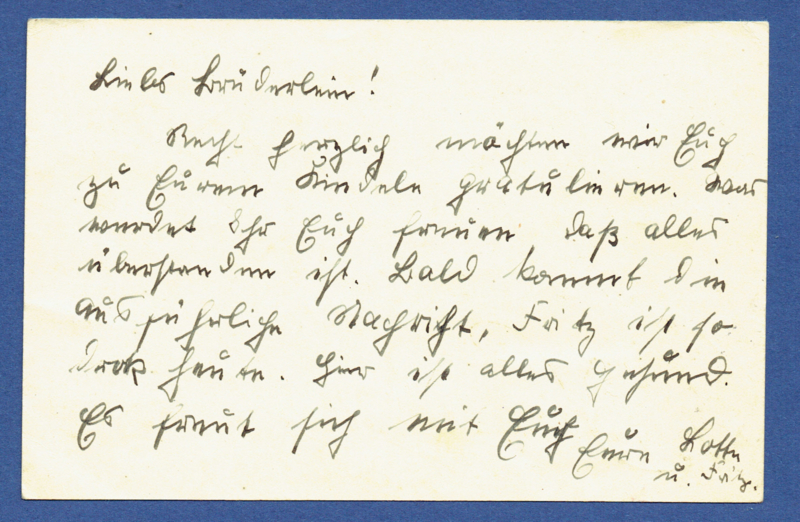 Liebes Brüderlein!
Recht herzlich möchten wir Euch
zu Eurem Kindele gratulieren. Was
werdet Ihr Euch freuen daß alles
überstanden ist. Bald kommt die
ausführliche Nachricht, Fritz ist so
heute. Hier ist alles gesund.
Es freut sich mit Euch
Eure Lotte
u. Fritz.